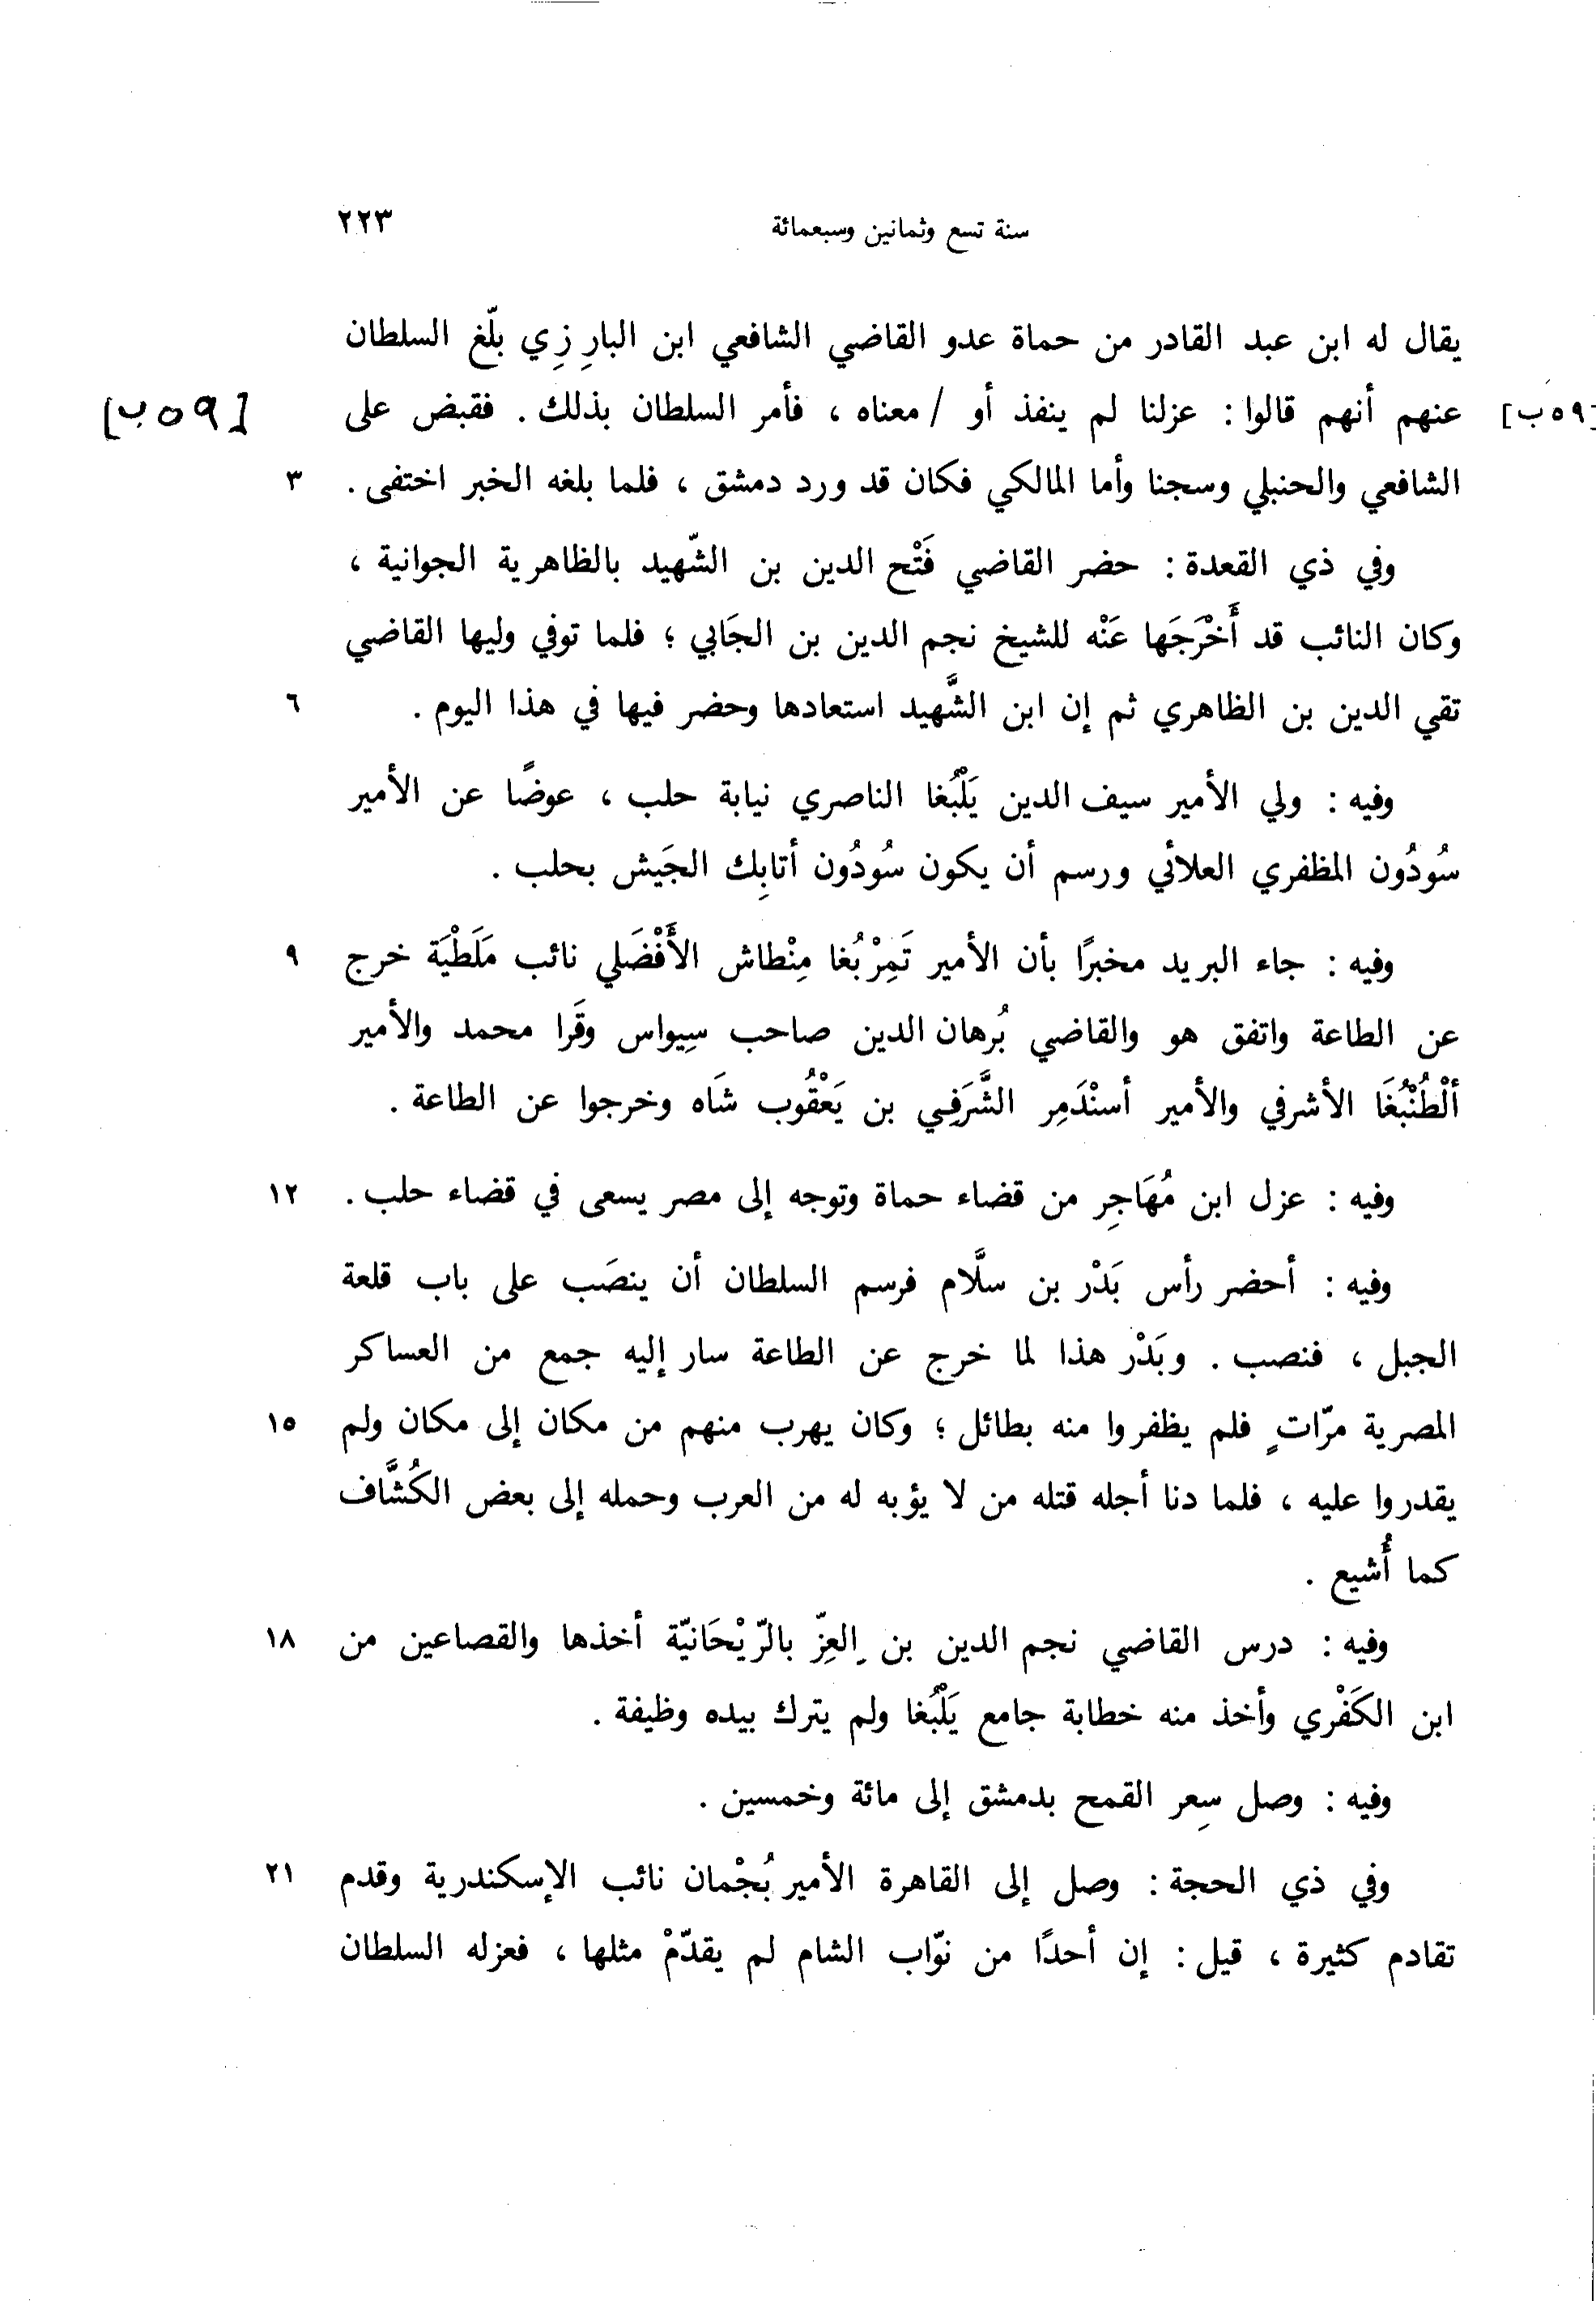 سنة تسع وثمانين وسبعمائة ٢٢٣
يقال له ابن عبد القادر من حماة عدو القاضي الشافعي ابن البارِزِي بلّغ السلطان
[٥٩ب] عنهم أنهم قالوا : عزلنا لم ينفذ أو / معناه ، فأمر السلطان بذلك . فقبض على [٥٩ب]
الشافعي والحنبلي وسجنا وأما المالكي فكان قد ورد دمشق ، فلما بلغه الخبر اختفى . ٣
وفي ذي القعدة : حضر القاضي فَتْح الدين بن الشّهيد بالظاهرية الجوانية ،
وكان النائب قد أَخْرَجَها عَنْه للشيخ نجم الدين بن الجَابي ؛ فلما توفي وليها القاضي
تقي الدين بن الظاهري ثم إن ابن الشَّهيد استعادها وحضر فيها في هذا اليوم . ٦
وفيه : ولي الأمير سيف الدين يَلْبُغا الناصري نيابة حلب ، عوضًا عن الأمير
سُودُون المظفري العلائي ورسم أن يكون سُودُون أتابِك الجَيش بحلب .
وفيه : جاء البريد مخبرًا بأن الأمير تَمِرْبُغا مِنْطاش الأَفْضَلي نائب مَلَطْيَة خرج ٩
عن الطاعة واتفق هو والقاضي بُرهان الدين صاحب سِيواس وقَرا محمد والأمير
ألْطُنْبُغَا الأشرفي والأمير أسنْدَمِر الشَّرَفِي بن يَعْقُوب شَاه وخرجوا عن الطاعة .
وفيه : عزل ابن مُهَاجِر من قضاء حماة وتوجه إلى مصر يسعى في قضاء حلب . ١٢
وفيه : أحضر رأس بَدْر بن سلَّام فرسم السلطان أن ينصَب على باب قلعة
الجبل ، فنصب . وبَدْر هذا لما خرج عن الطاعة سار إليه جمع من العساكر
المصرية مرّاتٍ فلم يظفروا منه بطائل ؛ وكان يهرب منهم من مكان إلى مكان ولم ١٥
يقدروا عليه ، فلما دنا أجله قتله من لا يؤبه له من العرب وحمله إلى بعض الكُشَّاف
كما أُشيع .
وفيه : درس القاضي نجم الدين بن العِزّ بالرّيْحَانيّة أخذها والقصاعين من ١٨
ابن الكَفْري وأخذ منه خطابة جامع يَلْبُغا ولم يترك بيده وظيفة .
وفيه : وصل سِعر القمح بدمشق إلى مائة وخمسين .
وفي ذي الحجة : وصل إلى القاهرة الأمير بُجْمان نائب الإسكندرية وقدم ٢١
تقادم كثيرة ، قيل : إن أحدًا من نوّاب الشام لم يقدّمْ مثلها ، فعزله السلطان